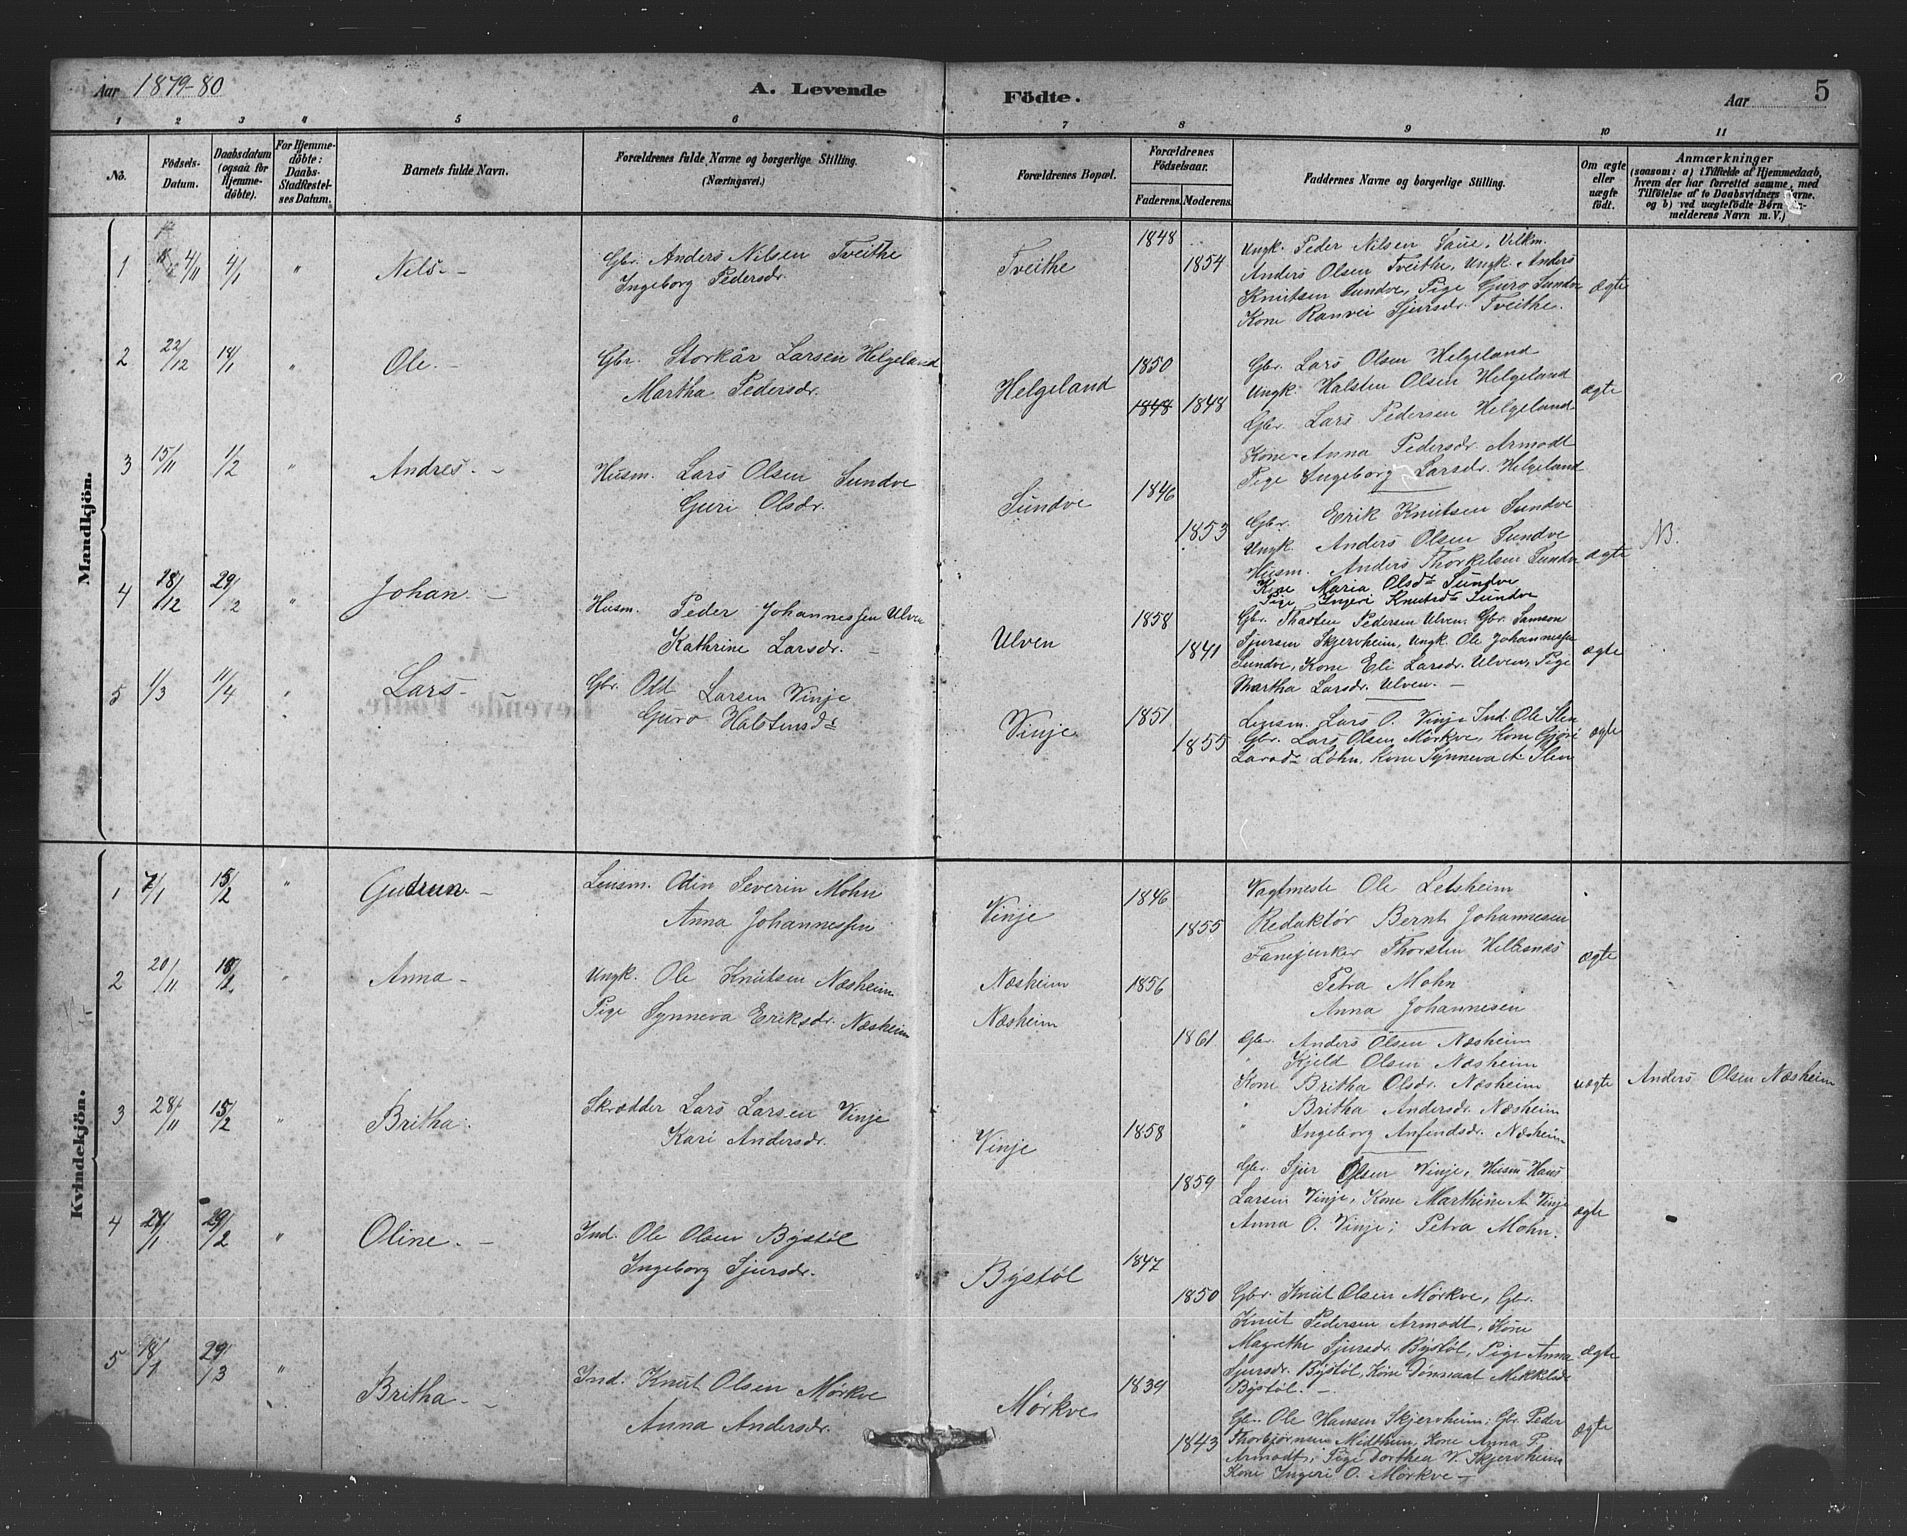 Aar 1879-80
A. Levende
Födte.
Aar
5
1 2 3 4 5 6 7 8 9 10 11
No.
Födsels-
Datum.
Daabsdatum
(ogsaa for
Hjemme-
döbte).
For Hjemme-
döbte:
Daabs-
Stadfæstel-
ses Datum.
Barnets fulde Navn.
Forældrenes fulde Navne og borgerlige Stilling.
(Næringsvei.)
Forældrenes Bopæl.
Forældrenes
Födselsaar.
Faderens. Moderens.
Faddernes Navne og borgerlige Stilling.
Om ægte
eller
uægte
födt.
Anmærkninger
(saasom: a) i Tilfælde af Hjemmedaab,
hvem der har forrettet samme, med
Tilföielse af to Daabsvidners Navne.
og b) ved uægtefödte Børn
melderens Navn m. V.)
Mandkjön.
1 4/11 4/1 " Nils. -
Gbr. Anders Nilsen Tveithe
Ingeborg Pedersdr.
Tveithe
1848
1854
Ungk. Peder Nilsen Saue,
Anders Olsen Tveithe, Ungk. Anders
Knutsen Sundve, Pige Guro Sundve
Kone Ranvei Sjursdr. Tveithe.
ægte
2 22/12 18/1 " Ole. -
Gbr. Storkår Larsen Helgeland
Martha Pedersdr.
Helgeland
1850
1848 1848
Gbr. Lars Olsen Helgeland
Ungk. Halsten Olsen Helgeland
Gbr. Lars Pedersen Helgeland
Kone Anna Pedersdr. Armodt
Pige Ingeborg Larsdr. Helgeland
ægte
3 15/11 1/2 " Andres. -
Husm. Lars Olsen Sundve
Guri Olsdr.
Sundve
1846
1853
Gbr. Erik Knutsen Sundve
Ungk. Anders Olsen Sundve
Husm. Anders Thorkelsen Sundve
Kone Maria Olsdr Sundve
Pige Ingeri Knutsdr Sundve
ægte
NB.
4 28/12 29/2 " Johan. -
Husm. Peder Johannessen Ulven
Kathrine Larsdr. -
Ulven
1858
1841
Gbr. Thosten Pedersen Ulven, Gbr. Samson
Sjursen Skjervheim, Ungk. Ole Johannessen
Sundve, Kone Eli Larsdr. Ulven, Pige
Martha Larsdr. Ulven. -
ægte
5 1/3 11/4 " Lars -
Gbr. Odd Larsen Vinje
Guro Halstensdr
Vinje
1851
1855
Lensm. Lars O. Vinje Ind. Ole Sten
Gbr. Lars Olsen Mörkve, Kone Gjöri
Larsdr Lohn, Kone Synneva A Sten
ægte
Kvindekjön.
1 7/1 15/2 " Gudrun. -
Lensm. Odin Severin Mohn
Anna Johannessen
Vinje
1846
1855
Vagtmeste Ole Letsheim
Redaktör Bernt Johannesen
Fanejunker Thorsten Hellesnæs
Petra Mohn
Anna Johannesen
ægte
2 20/11 18/1 " Anna -
Ungk. Ole Knutsen Næsheim
Pige Synneva Eriksdr. Næsheim
Næsheim
Næsheim
1856
1861
Gbr. Anders Olsen Næsheim
" Kjeld Olsen Næsheim
Kone Britha Olsdr. Næsheim
" Britha Andersdr. Næsheim
" Ingeborg Anfindsdr. Næsheim
uægte
Anders Olsen Næsheim
3 28/11 15/2 " Britha.
Skrædder Lars Larsen Vinje
Kari Andersdr.
Vinje
1858
1859
Gbr. Sjur Olsen Vinje, Husm Hans
Larsen Vinje, Kone Marthine A. Vinje
Anna O. Vinje; Petra Mohn.
ægte
4 21/1 29/2 " Oline. -
Ind. Ole Olsen Bÿstöl
Ingeborg Sjursdr.
Bÿstöl
1847
1850
Gbr. Knut Olsen Mörkve, Gbr.
Knut Pedersen Armodt, Kone
Magrethe Sjursdr. Bÿstöl, Pige Anna
Sjursdr. Bÿstöl, Kone Mikkelsdr
Bÿstöl. -
ægte
5 18/1 29/3 " Britha. -
Ind. Knut Olsen Mörkve
Anna Andersdr.
Mörkve
1839
1843
Gbr. Ole Hansen Skjervheim; Gbr. Peder
Thorbjörnsen Midthun, Kone Anna P.
Armodt; Pige Dorthea V. Skjervheim
Kone Ingeri O. Mörkve -
ægte